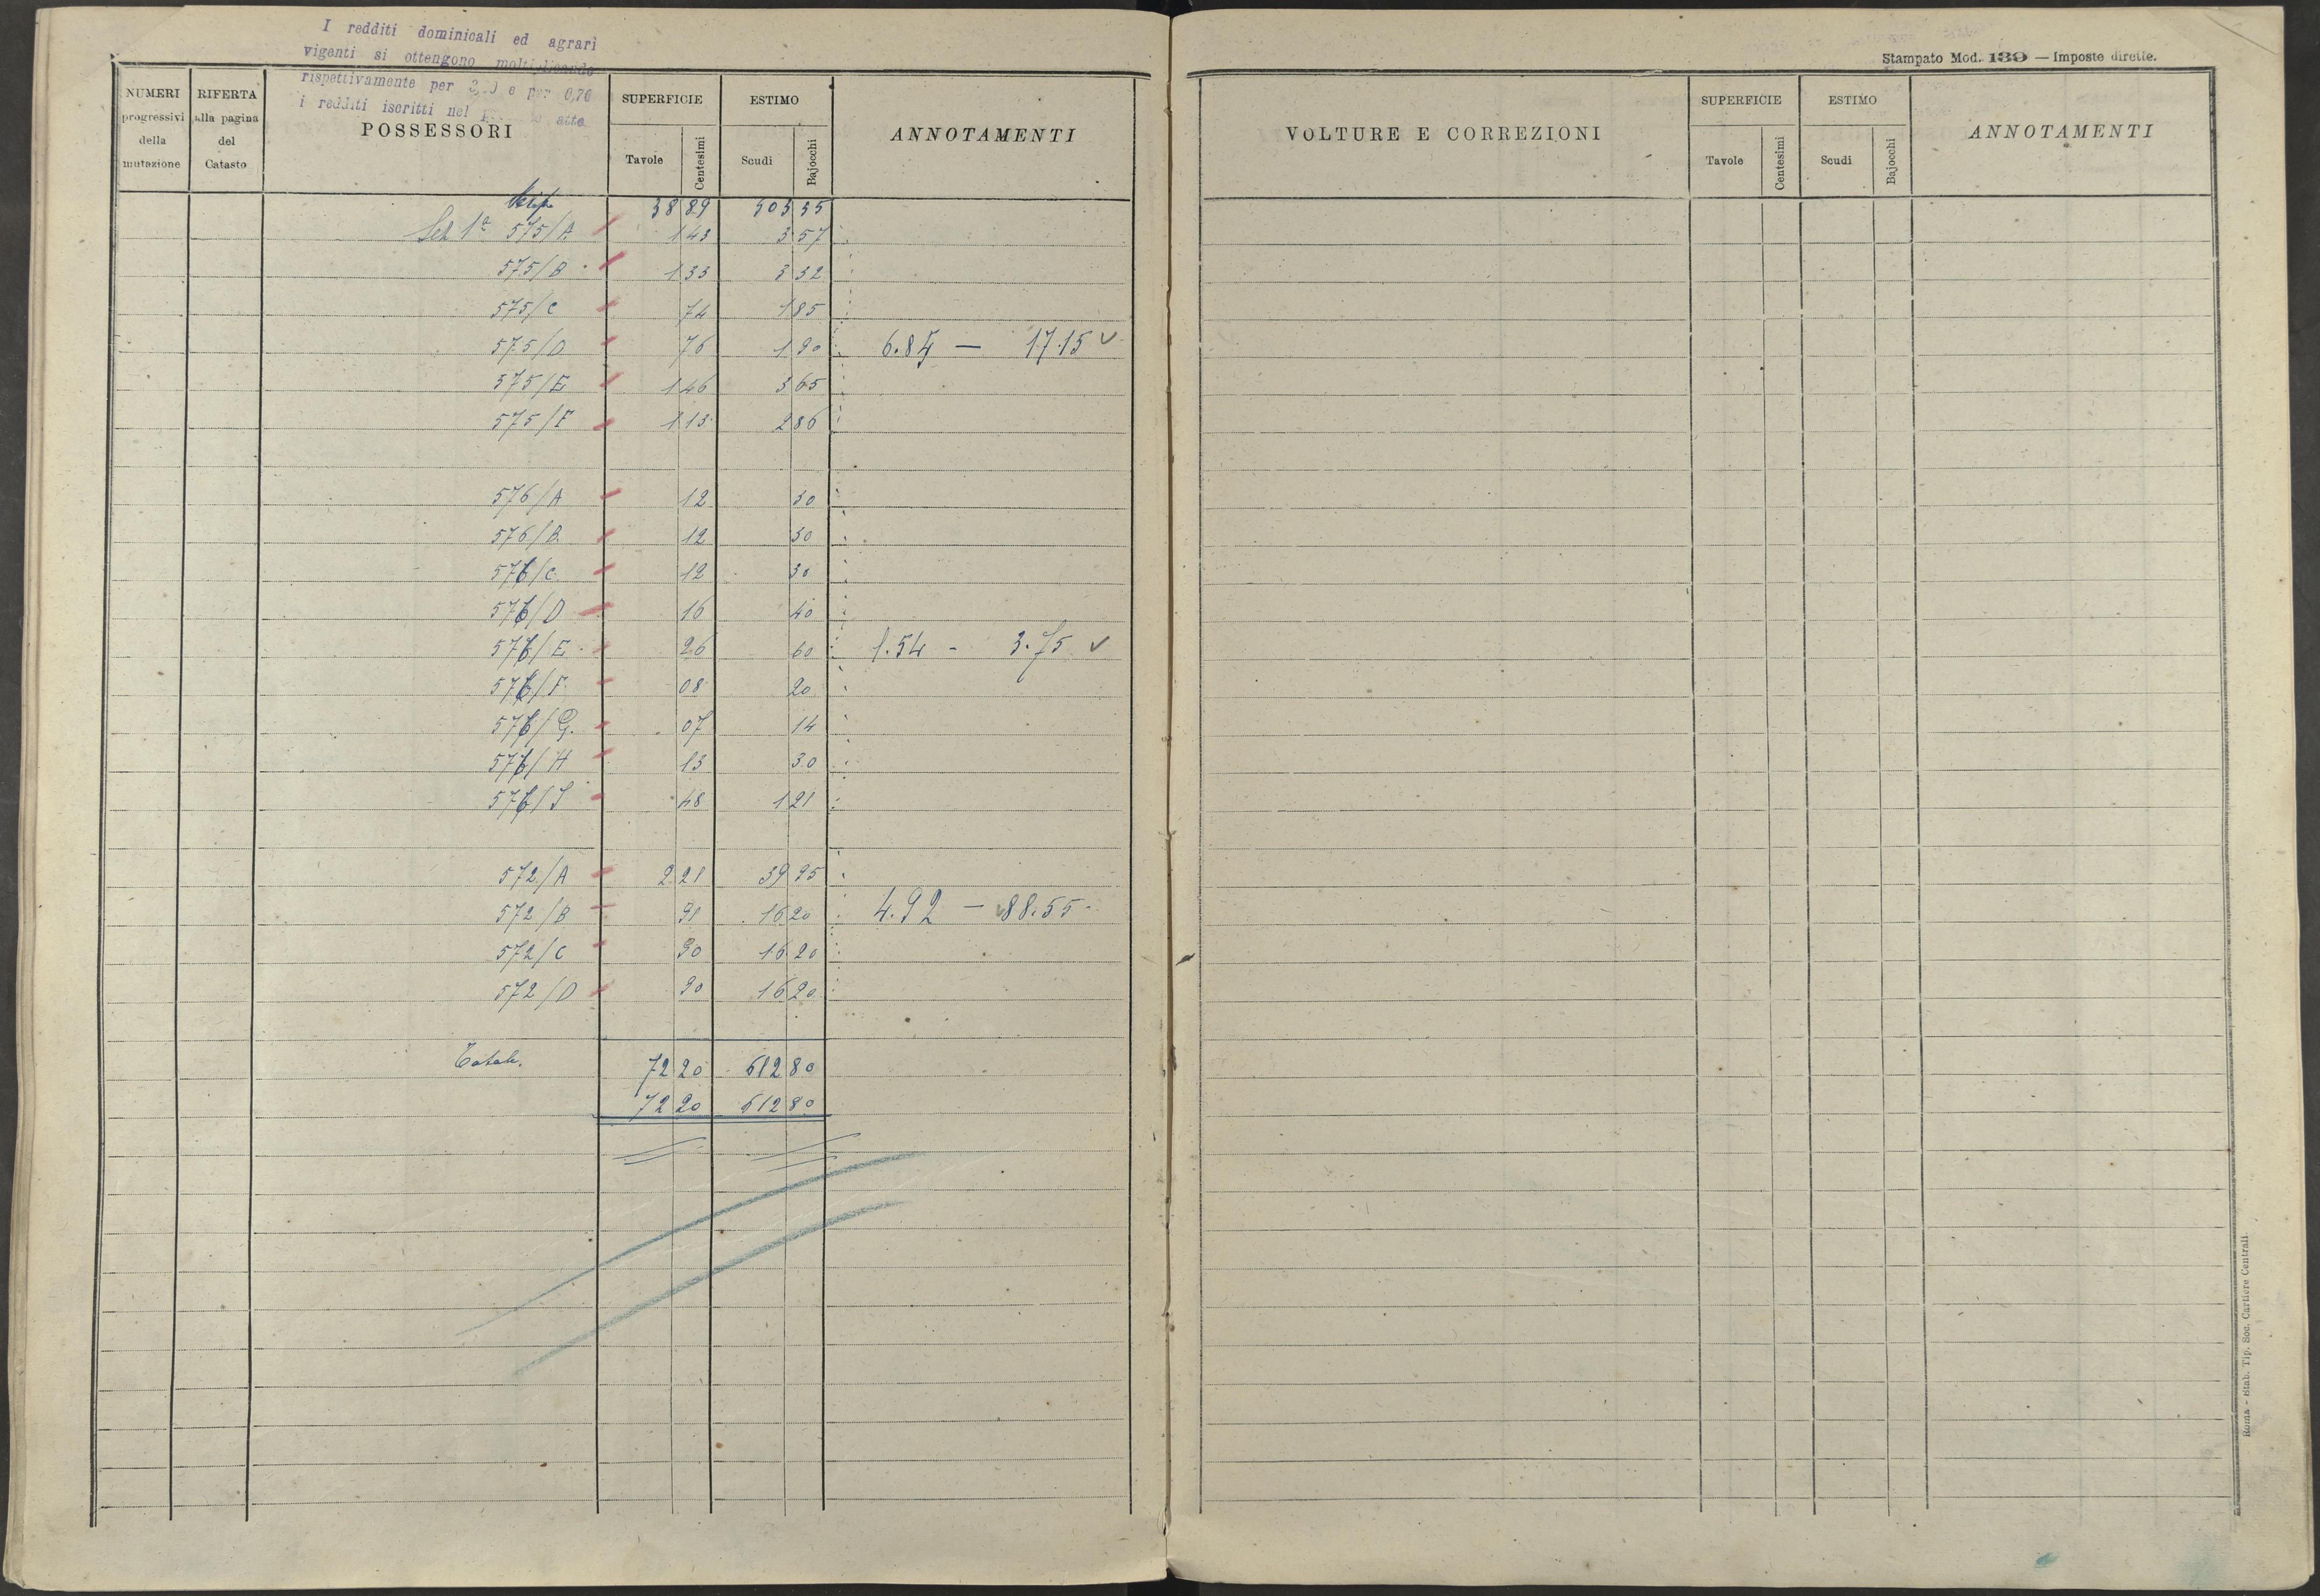 I redditi dominicali ed agrari
vigenti si ottengono moltiplicando
rispettivamente per e per 0,70
i redditi iscritti nel atto
NUMERI progressivi della mutazione
RIFERTA alla pagina del Catasto
POSSESSORI
SUPERFICIE
Tavole Centesimi
ESTIMO
Scudi Bajocchi
ANNOTAMENTI
38 89 503 35
1ª 575/A 1 43 3 57
575/B 1 33 3 32
575/C 74 1 85
575/D 76 1 90 6.85 — 17.15
575/E 1 46 3 65
575/F 1 13 2 86
576/A 12 30
576/B 12 30
576/C 12 30
576/D 16 40
576/E 26 60 1.54 - 3.75
576/F 08 20
576/G 07 14
576/H 13 30
576/I 48 1 21
572/A 2 21 39 95
572/B 91 16 20 4.92 — 88.55
572/C 90 16 20
572/D 90 16 20
Totale 72 20 612 80
72 20 612 80
Stampato Mod. 139 — Imposte dirette.
VOLTURE E CORREZIONI
SUPERFICIE
Tavole Centesimi
ESTIMO
Scudi Bajocchi
ANNOTAMENTI
Roma - Stab. Tip. Soc. Cartiere Centrali